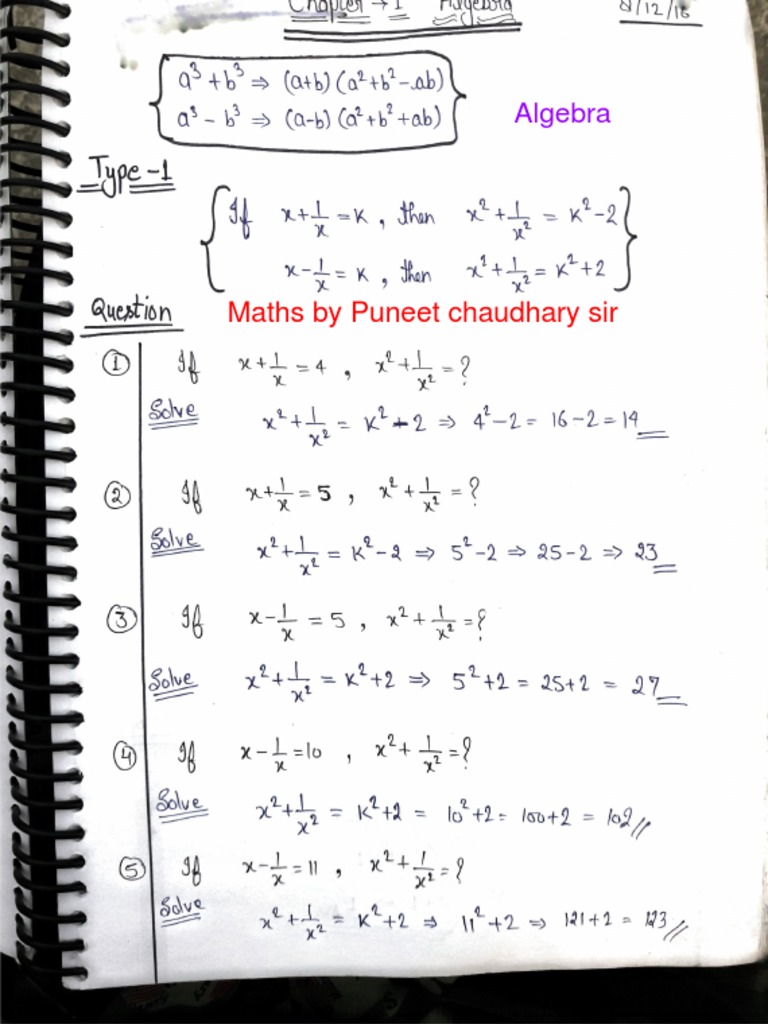 Chapter → 1 Algebra
8/12/16
a³ + b³ ⇒ (a+b) (a²+b²-ab)
a³ - b³ ⇒ (a-b) (a²+b²+ab)
Algebra
Type-1
If x+1/x = K, then x²+1/x² = K²-2
x-1/x = K, then x²+1/x² = K²+2
Question
Maths by Puneet chaudhary sir
① If x+1/x = 4, x²+1/x² = ?
Solve x²+1/x² = K²-2 ⇒ 4²-2 = 16-2 = 14
② If x+1/x = 5, x²+1/x² = ?
Solve x²+1/x² = K²-2 ⇒ 5²-2 ⇒ 25-2 ⇒ 23
③ If x-1/x = 5, x²+1/x² = ?
Solve x²+1/x² = K²+2 ⇒ 5²+2 = 25+2 = 27
④ If x-1/x = 10, x²+1/x² = ?
Solve x²+1/x² = K²+2 = 10²+2 = 100+2 = 102//
⑤ If x-1/x = 11, x²+1/x² = ?
Solve x²+1/x² = K²+2 ⇒ 11²+2 ⇒ 121+2 = 123//